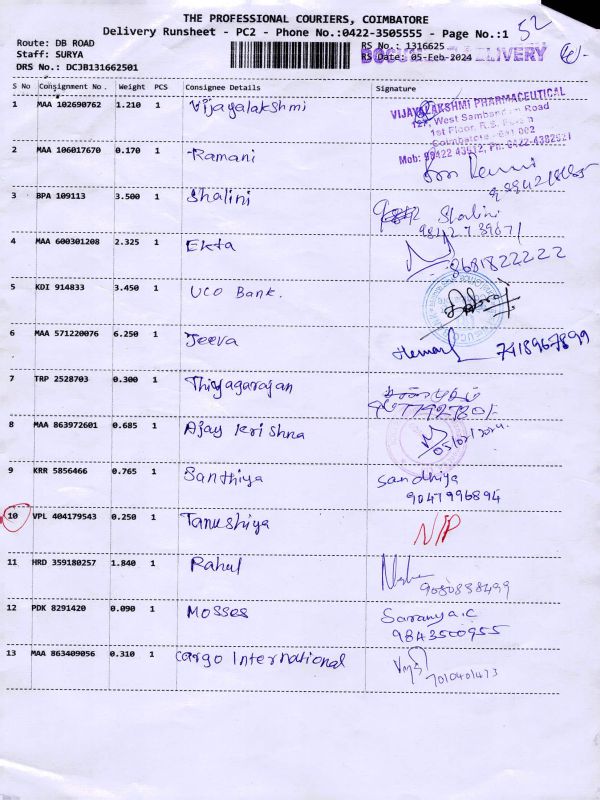 THE PROFESSIONAL COURIERS, COIMBATORE
Delivery Runsheet - PC2 - Phone No.:0422-3505555 - Page No.:1 52
Route: DB ROAD RS No.: 1316625
Staff: SURYA DELIVERY RS Date: 05-Feb-2024
DRS No.: DCJB131662501
S No Consignment No. Weight PCS Consignee Details Signature
1 MAA 102690762 1.210 1 Vijayalakshmi
VIJAYALAKSHMI PHARMACEUTICAL
127, West Samban Road
1st Floor, R.S.
Coimbatore - 641 002
Mob: 98422 43612, Ph: 0422-4382521
2 MAA 106017670 0.170 1 Ramani
3 BPA 109113 3.500 1 Shalini Shalini
4 MAA 600301208 2.325 1 Ekta
8681822222
5 KDI 914833 3.450 1 UCO Bank.
6 MAA 571220076 6.250 1 Jeeva 7418967899
7 TRP 2528703 0.300 1 Thiyagarajan
8 MAA 863972601 0.685 1 Ajay Krishna
05/02/2024.
9 KRR 5856466 0.765 1 Santhiya Sandhiya
9047996894
10 VPL 404179543 0.250 1 Tanushiya N/P
11 HRD 359180257 1.840 1 Rahul
9080888499
12 PDK 8291420 0.090 1 Mosses Saranya.C
9843500955
13 MAA 863409056 0.310 1 Cargo International
7010401473